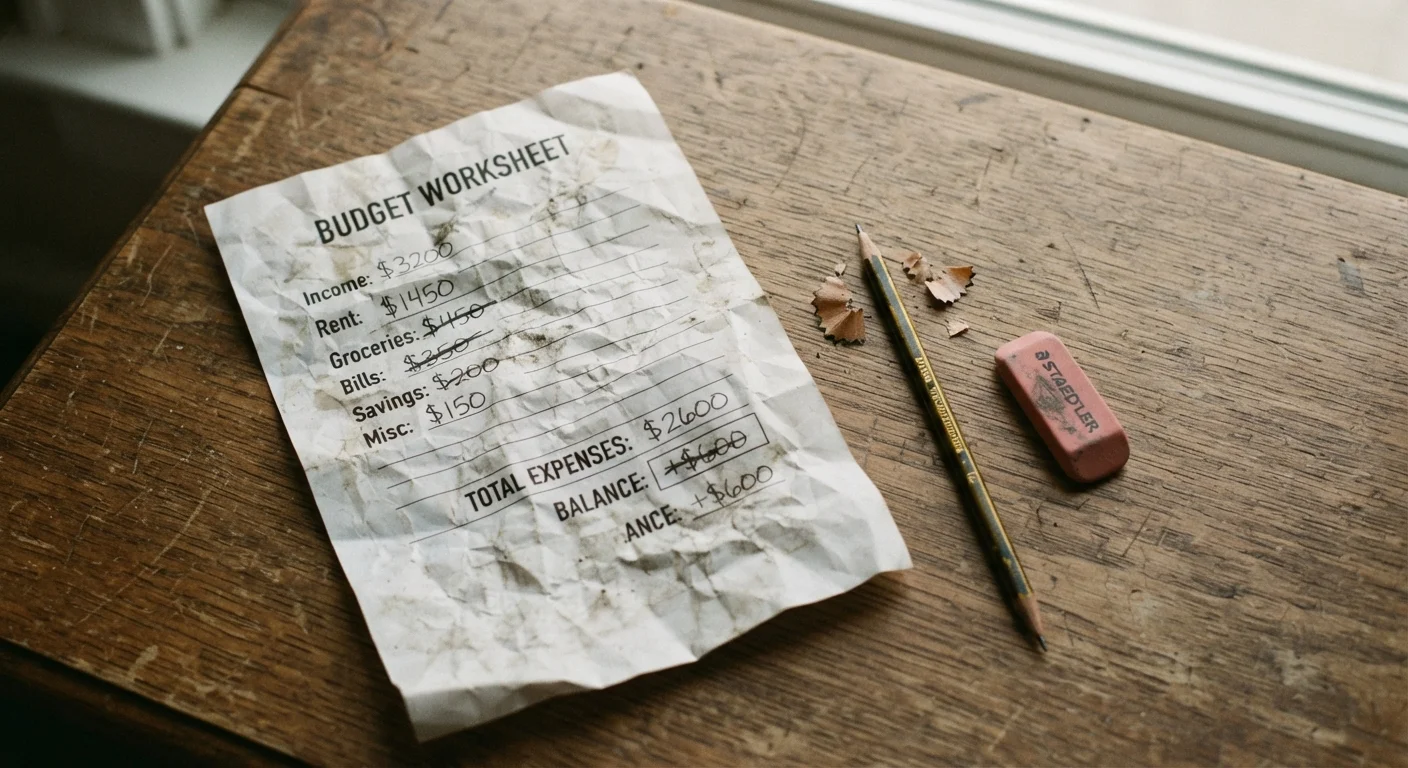 BUDGET WORKSHEET
Income: $3200
Rent: $1450
Groceries: $450
Bills: $350
Savings: $200
Misc: $150
TOTAL EXPENSES: $2600
BALANCE: +$600
ANCE: +$600
STAEDTLER